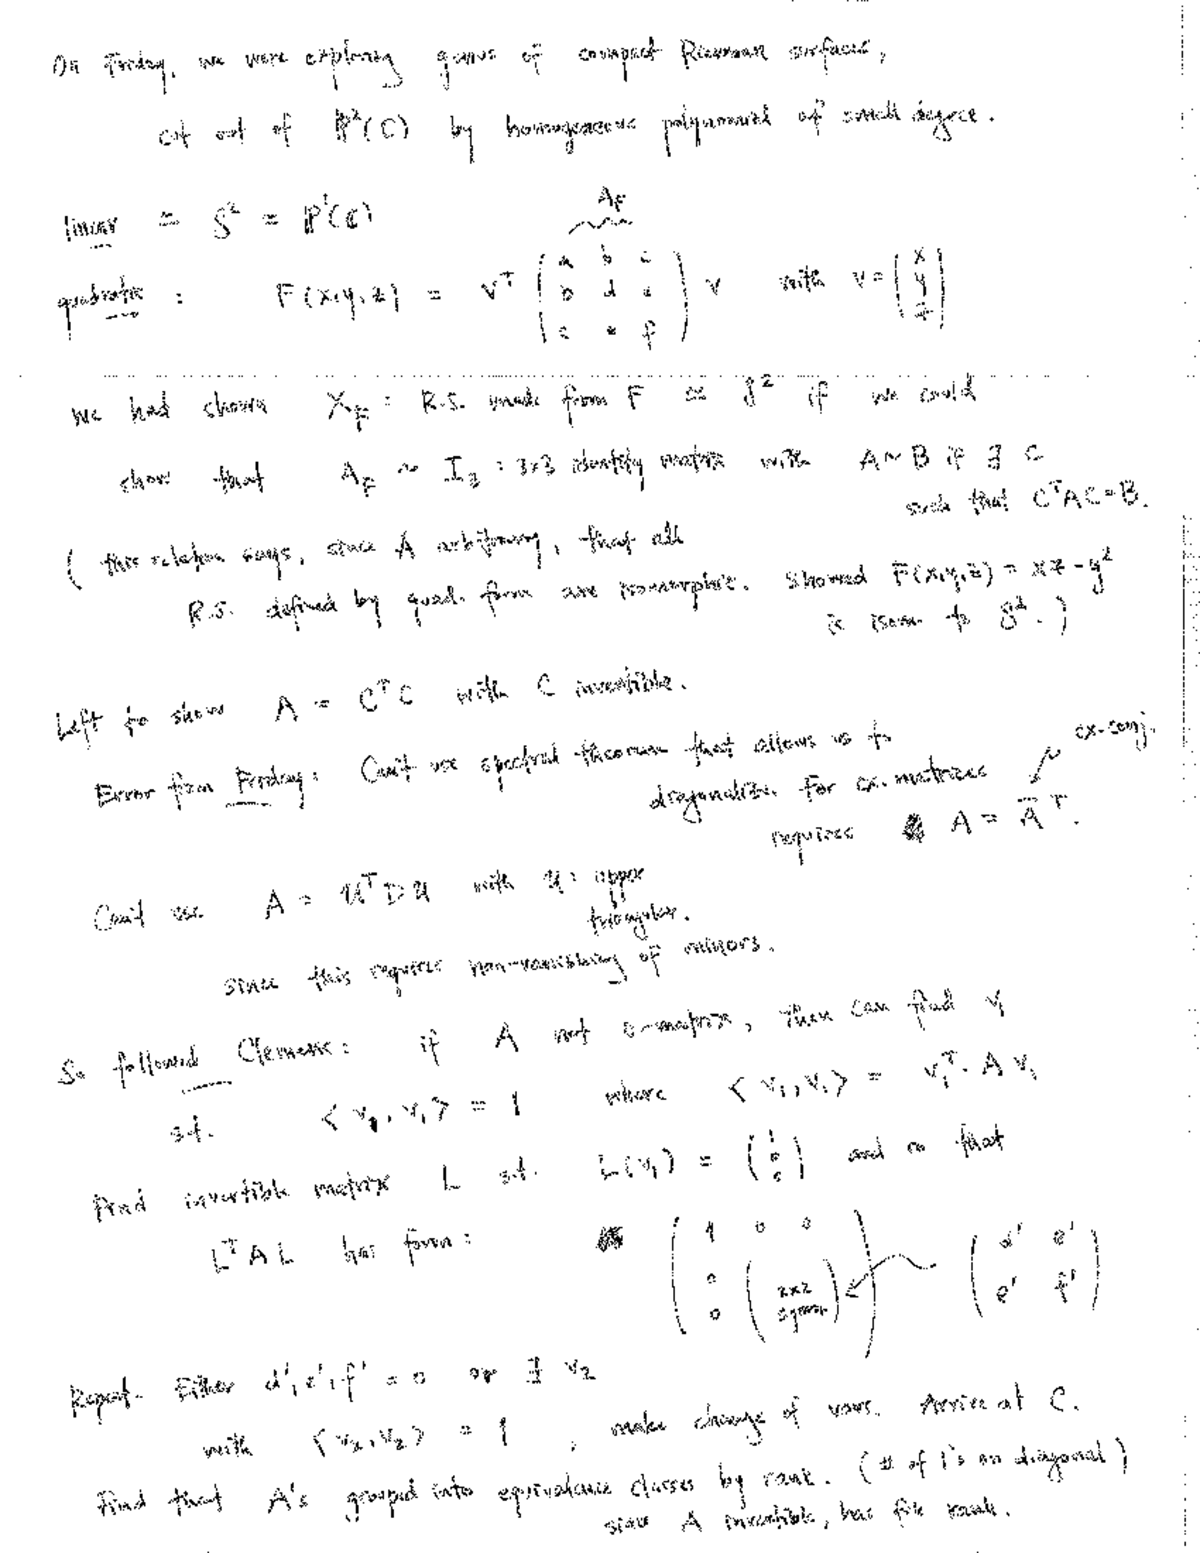 On Friday, we were exploring genus of compact Riemann surfaces,
cut out of P²(C) by homogeneous polynomial of small degree.
linear ≃ S² = P¹(C)
A_F
quadratic : F(x,y,z) = v^T ( a b c ; b d e ; c e f ) v with v = ( x ; y ; z )
We had shown X_F : R.S. made from F ≃ S² if we could
show that A_F ~ I_3 : 3x3 identity matrix with A ~ B if ∃ C
such that C^T A C = B.
( this relation says, since A arbitrary, that all
R.S. defined by quad. form are isomorphic. Showed F(x,y,z) = xz - y²
is isom. to S². )
Left to show A = C^T C with C invertible.
cx. conj.
Error from Friday: Can't use spectral theorem that allows us to
diagonalize. For cx. matrices
requires A = Ā^T.
Can't use A = U^T D U with U : upper
triangular.
since this requires non-vanishing of minors.
So followed Clemens: if A not 0-matrix, then can find v_1
s.t. < v_1, v_1 > = 1 where < v_1, v_1 > = v_1^T · A v_1
Find invertible matrix L s.t. L(v_1) = ( 1 ; 0 ; 0 ) and so that
L^T A L has form: ( 1 0 0 ; 0 ; 0 ( 2x2 symm. ) ) ( d' e' ; e' f' )
Repeat. Either d', e', f' = 0 or ∃ v_2
with < v_2, v_2 > = 1 , make change of vars. Arrive at C.
Find that A's grouped into equivalence classes by rank. ( # of 1's on diagonal )
since A invertible, has full rank.